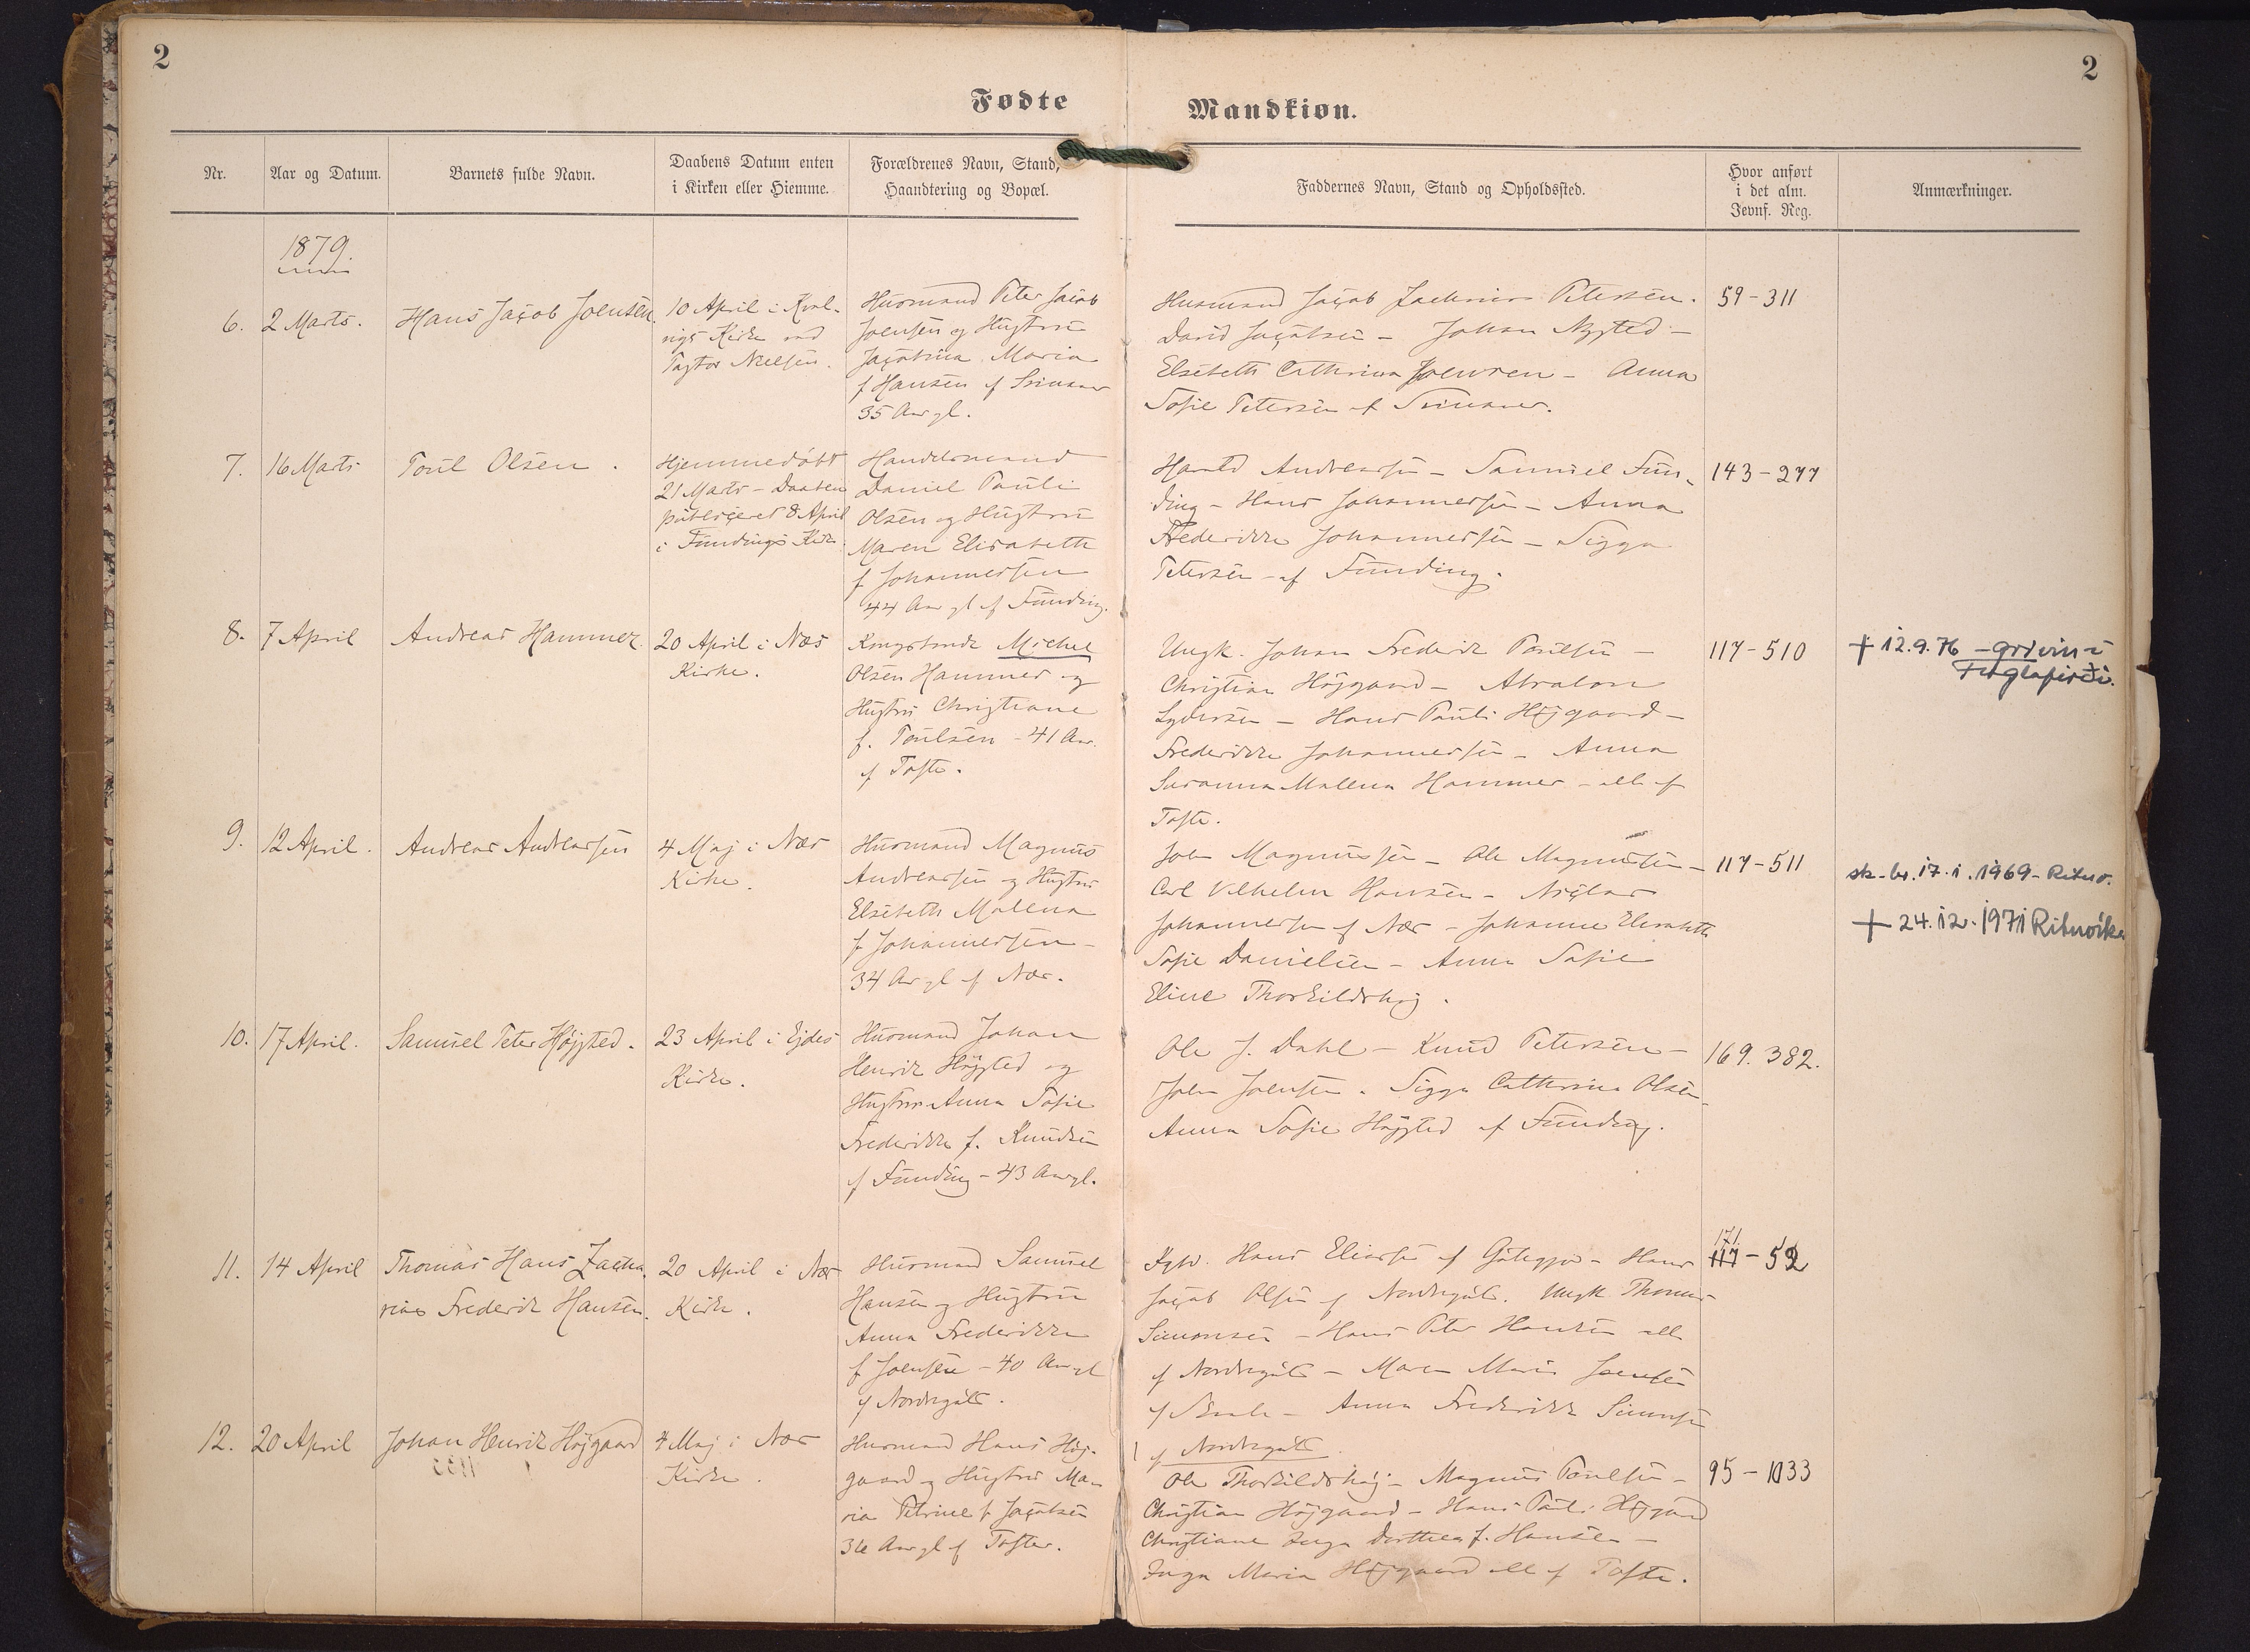 2
2
Fødte
Mandkiøn.
Nr.
Aar og Datum.
Barnets fulde Navn.
Daabens Datum enten
i Kirken eller Hiemme.
Forældrenes Navn, Stand,
Haandtering og Bopæl.
Faddernes Navn, Stand og Opholdssted.
Hvor anført
i det alm.
Jevnf. Reg.
Anmærkninger.
1879.
6.
2 Marts.
Hans Jacob Joensen.
10 April i Kval-
vigs Kirke ved
Pastor Nielsen.
Husmand Peter Jacob
Joensen og Hustru
Jacobina Maria
f Hansen af
35 Aar gl.
Husmand Jacob Petersen.
David Jacobsen - Johan Nysted -
Elsebeth Cathrina Joensen - Anna
Sofie Petersen af
59-311
7.
16 Marts
Poul Olsen.
Hjemmedøbt
21 Marts - Daaben
publiceret 8 April
i Fundings Kirke.
Handelsmand
Daniel Pauli
Olsen og Hustru
Maren Elisabeth
f Johannessen
44 Aar gl af Funding.
Harald Andreassen - Samuel Fun-
ding - Hans Johannessen - Anna
Frederikke Johannessen - Sigga
Petersen - af Funding.
143-277
8.
7 April
Andreas Hammer
20 April i Næs
Kirke.
Kongsbonde Michel
Olsen Hammer og
Hustru Christiane
f. Poulsen - 41 Aar
af Tofte.
Ungk. Johan Frederik Poulsen -
Christian Højgaard - Absalon
Lydersen - Hans Pauli Højgaard -
Frederikke Johannessen - Anna
Susanna Malena Hammer - alle af
Tofte.
117-510
+ 12.9.76 - grivin í
Fuglafirði.
9.
12 April.
Andreas Andreassen
4 Maj i Næs
Kirke.
Husmand Magnus
Andreassen og Hustru
Elsebeth Malena
f Johannessen -
34 Aar gl af Næs.
Joen Magnussen - Ole Magnussen -
Carl Vilhelm Hansen - Niclas
Johannessen af Næs - Johanne Elisabeth
Sofie Danielsen - Anna Sofie
Eline Thorkildshøj.
117-511
sk-br. 17.1.1969 -
+ 24.12.1971
10.
17 April.
Samuel Peter Højsted.
23 April i Ejdes
Kirke.
Husmand Johan
Henrik Højsted og
Hustru Anna Sofie
Frederikke f. Knudsen
af Funding - 43 Aar gl.
Ole J. Dahl - Knud Petersen -
Joen Joensen. Sigga Cathrina Olsen -
Anna Sofie Højsted af Funding.
169. 382.
11.
14 April
Thomas Hans Zacha-
rias Frederik Hansen.
20 April i Næs
Kirke.
Husmand Samuel
Hansen og Hustru
Anna Frederikke
f Joensen - 40 Aar gl
af Nordregøte.
Hans Eliassen af Gøtegjov - Hans
Jacob Olsen af Nordregøte. Ungk Thomas
Simonsen - Hans Peter Hansen alle
af Nordregøte - Maren Maria Joensen
af - Anna Frederikke Simonsen
af Nordregøte.
171
117-52
12.
20 April
Johan Henrik Højgaard
4 Maj i Næs
Kirke.
Husmand Hans Høj-
gaard og Hustru Ma-
ria Petrine f Jacobsen
36 Aar gl af Tofte.
Ole Thorkildshøj - Magnus Poulsen -
Christian Højgaard - Hans Pauli Højgaard
Christiane Inga Dorthea f. Hansen -
Inga Maria Højgaard alle af Tofte.
95-1033